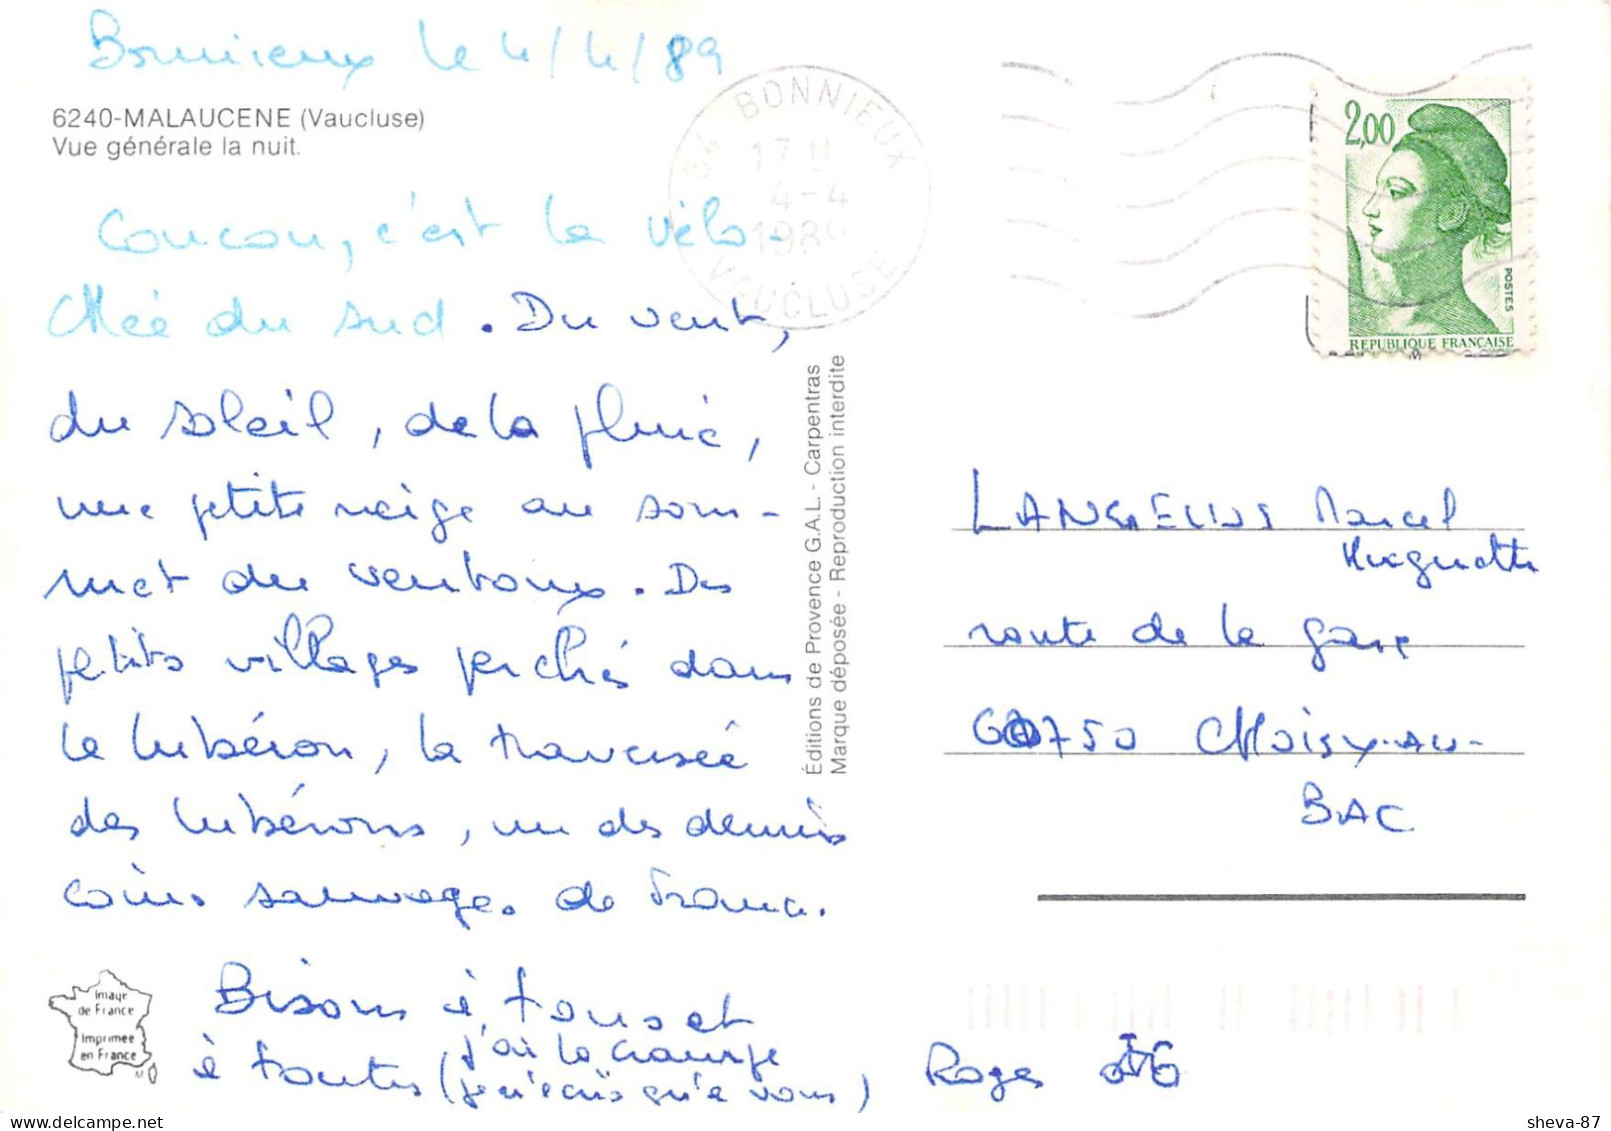 Bonnieux le 4/4/89
6240-MALAUCENE (Vaucluse)
Vue générale la nuit.
Coucou, c'est la vélo-
Mée du sud. Du vent,
du soleil, de la pluie,
une petite neige au som-
met du ventoux. Des
petits villages perchés dans
le lubéron, la traversée
des lubérons, un des derniers
coins sauvages de France.
Bisous à tous et
à toutes (j'ai la crampe
je n'écris qu'à vous)
Roger
Image
de France
Imprimée
en France
Éditions de Provence G.A.L. - Carpentras
Marque déposée - Reproduction interdite
84 BONNIEUX
17 H
4-4
1989
VAUCLUSE
2,00
POSTES
REPUBLIQUE FRANÇAISE
Marcel
Huguette
route de la gare
60750 CHOISY-AU-
BAC
sheva-87